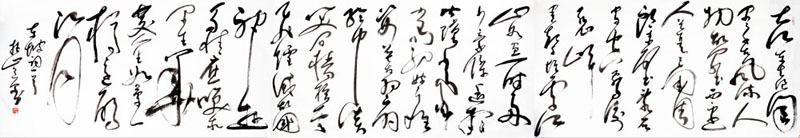 大江东去浪淘
尽千古风流人
物故垒西边
人道是三国周
郎赤壁乱石
穿空惊涛
裂岸
卷起千堆雪江
山如画一时多
少豪杰遥想
公瑾当年小
乔初嫁了雄
姿英发羽扇
纶巾谈
笑间樯橹灰
飞烟灭故国
神游
多情应笑我
早生华
发人生如梦
一樽还酹
江月
东坡词一首